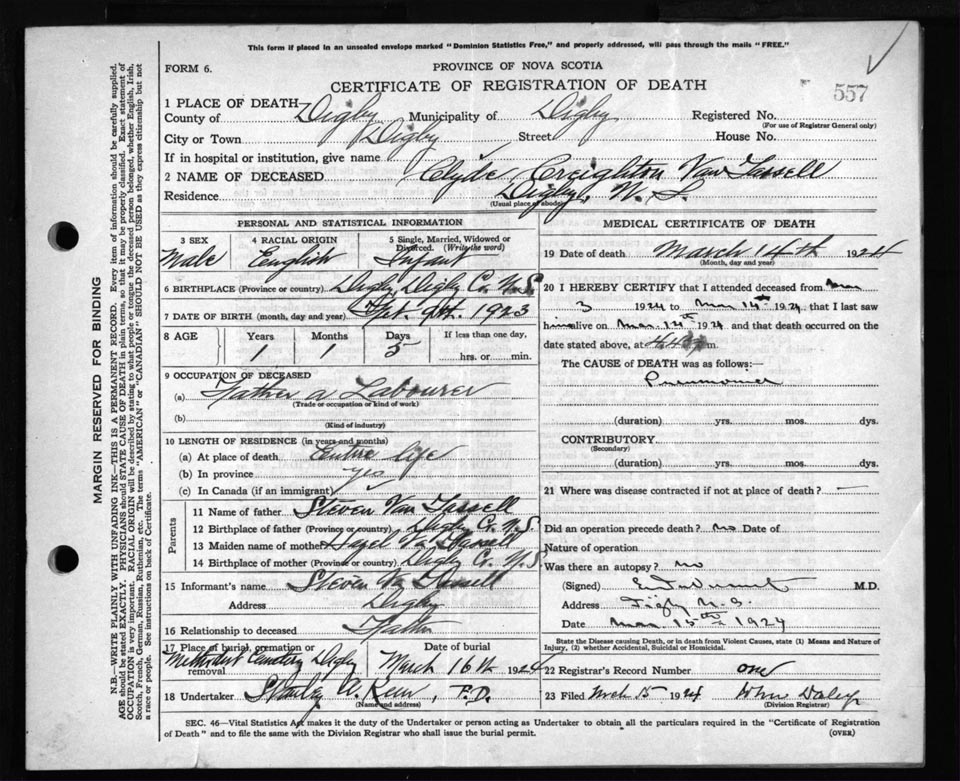 This form if placed in an unsealed envelope marked "Dominion Statistics Free," and properly addressed, will pass through the mails "FREE."
FORM 6.
PROVINCE OF NOVA SCOTIA
CERTIFICATE OF REGISTRATION OF DEATH
557
1 PLACE OF DEATH
County of Digby Municipality of Digby Registered No.
(For use of Registrar General only)
City or Town Digby Street House No.
If in hospital or institution, give name
2 NAME OF DECEASED Clyde Creighton Van Tassell
Residence Digby, N. S.
(Usual place of abode)
PERSONAL AND STATISTICAL INFORMATION
3 SEX 4 RACIAL ORIGIN 5 Single, Married, Widowed or Divorced. (Write the word)
Male English Infant
6 BIRTHPLACE (Province or country) Digby Digby Co. N.S.
7 DATE OF BIRTH (month, day and year) 9th. 1923
8 AGE Years Months Days If less than one day,
1 1 5 hrs. or min.
9 OCCUPATION OF DECEASED
(a) Father a Labourer
(Trade or occupation or kind of work)
(b)
(Kind of industry)
10 LENGTH OF RESIDENCE (in years and months)
(a) At place of death Entire life
(b) In province yes
(c) In Canada (if an immigrant)
Parents
11 Name of father Steven Van Tassell
12 Birthplace of father (Province or country) Digby Co. N.S.
13 Maiden name of mother Hazel Van Tassell
14 Birthplace of mother (Province or country) Digby Co. N.S.
15 Informant's name Steven Van Tassell
Address Digby
16 Relationship to deceased Father
17 Place of burial, cremation or removal Date of burial
Methodist Cemetery Digby March 16th 1924
18 Undertaker , F.D.
(Name and address)
MEDICAL CERTIFICATE OF DEATH
19 Date of death March 14th 1924
(Month, day and year)
20 I HEREBY CERTIFY that I attended deceased from Mar
3 1924 to Mar 14th 1924, that I last saw
him alive on Mar. 1924 and that death occurred on
date stated above, at m.
The CAUSE of DEATH was as follows:—
Pneumonia
(duration) yrs. mos. dys.
CONTRIBUTORY
(Secondary)
(duration) yrs. mos. dys.
21 Where was disease contracted if not at place of death? —
Did an operation precede death? no Date of
Nature of operation
Was there an autopsy? no
(Signed) M.D.
Address Digby N.S.
Date Mar 15th 1924
State the Disease causing Death, or in death from Violent Causes, state (1) Means and Nature of
Injury, (2) whether Accidental, Suicidal or Homicidal.
22 Registrar's Record Number one
23 Filed March 15 1924 Daley
(Division Registrar)
SEC. 46—Vital Statistics Act makes it the duty of the Undertaker or person acting as Undertaker to obtain all the particulars required in the "Certificate of Registration
of Death" and to file the same with the Division Registrar who shall issue the burial permit.
(OVER)
MARGIN RESERVED FOR BINDING
N.B.—WRITE PLAINLY WITH UNFADING INK—THIS IS A PERMANENT RECORD. Every item of information should be carefully supplied.
AGE should be stated EXACTLY. PHYSICIANS should STATE CAUSE OF DEATH in plain terms, so that it may be properly classified. Exact statement of
OCCUPATION is very important. RACIAL ORIGIN will be described by stating to what people or tongue the deceased person belonged, whether English, Irish,
Scotch, French, German, Russian, Ruthenian, etc. The terms "AMERICAN" or "CANADIAN" SHOULD NOT BE USED as they express citizenship but not
a race or people. See instructions on back of Certificate.